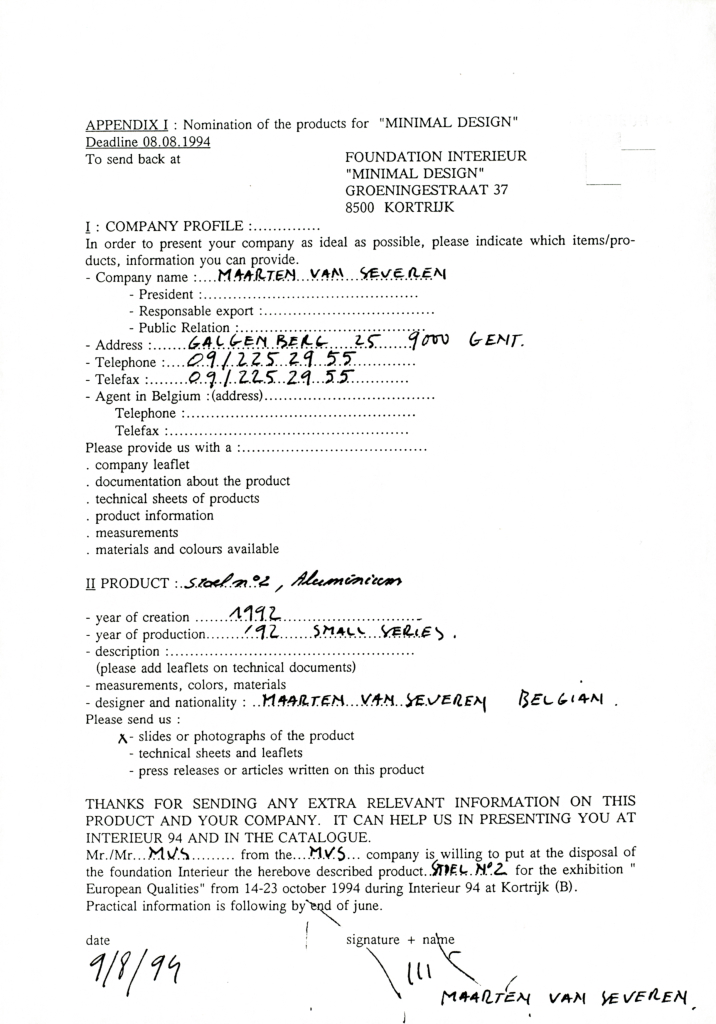 APPENDIX I : Nomination of the products for "MINIMAL DESIGN"
Deadline 08.08.1994
To send back at FOUNDATION INTERIEUR
"MINIMAL DESIGN"
GROENINGESTRAAT 37
8500 KORTRIJK
I : COMPANY PROFILE :..............
In order to present your company as ideal as possible, please indicate which items/pro-
ducts, information you can provide.
- Company name :....MAARTEN VAN SEVEREN
- President :............................................
- Responsable export :...................................
- Public Relation :......................................
- Address :......GALGENBERG 25 9000 GENT.
- Telephone :....09/225 29 55..............
- Telefax :........09/225 29 55............
- Agent in Belgium :(address)....................................
Telephone :...............................................
Telefax :.................................................
Please provide us with a :......................................
. company leaflet
. documentation about the product
. technical sheets of products
. product information
. measurements
. materials and colours available
II PRODUCT : Stoel n°2, Aluminium
- year of creation .......1992..................................
- year of production........'92.......SMALL SERIES.
- description :..................................................
(please add leaflets on technical documents)
- measurements, colors, materials
- designer and nationality : ..MAARTEN VAN SEVEREN BELGIAN.
Please send us :
X - slides or photographs of the product
- technical sheets and leaflets
- press releases or articles written on this product
THANKS FOR SENDING ANY EXTRA RELEVANT INFORMATION ON THIS
PRODUCT AND YOUR COMPANY. IT CAN HELP US IN PRESENTING YOU AT
INTERIEUR 94 AND IN THE CATALOGUE.
Mr./Mr...MVS......... from the...M.V.S... company is willing to put at the disposal of
the foundation Interieur the herebove described product..STOEL N°2 for the exhibition "
European Qualities" from 14-23 october 1994 during Interieur 94 at Kortrijk (B).
Practical information is following by end of june.
date signature + name
9/8/94
MAARTEN VAN SEVEREN.